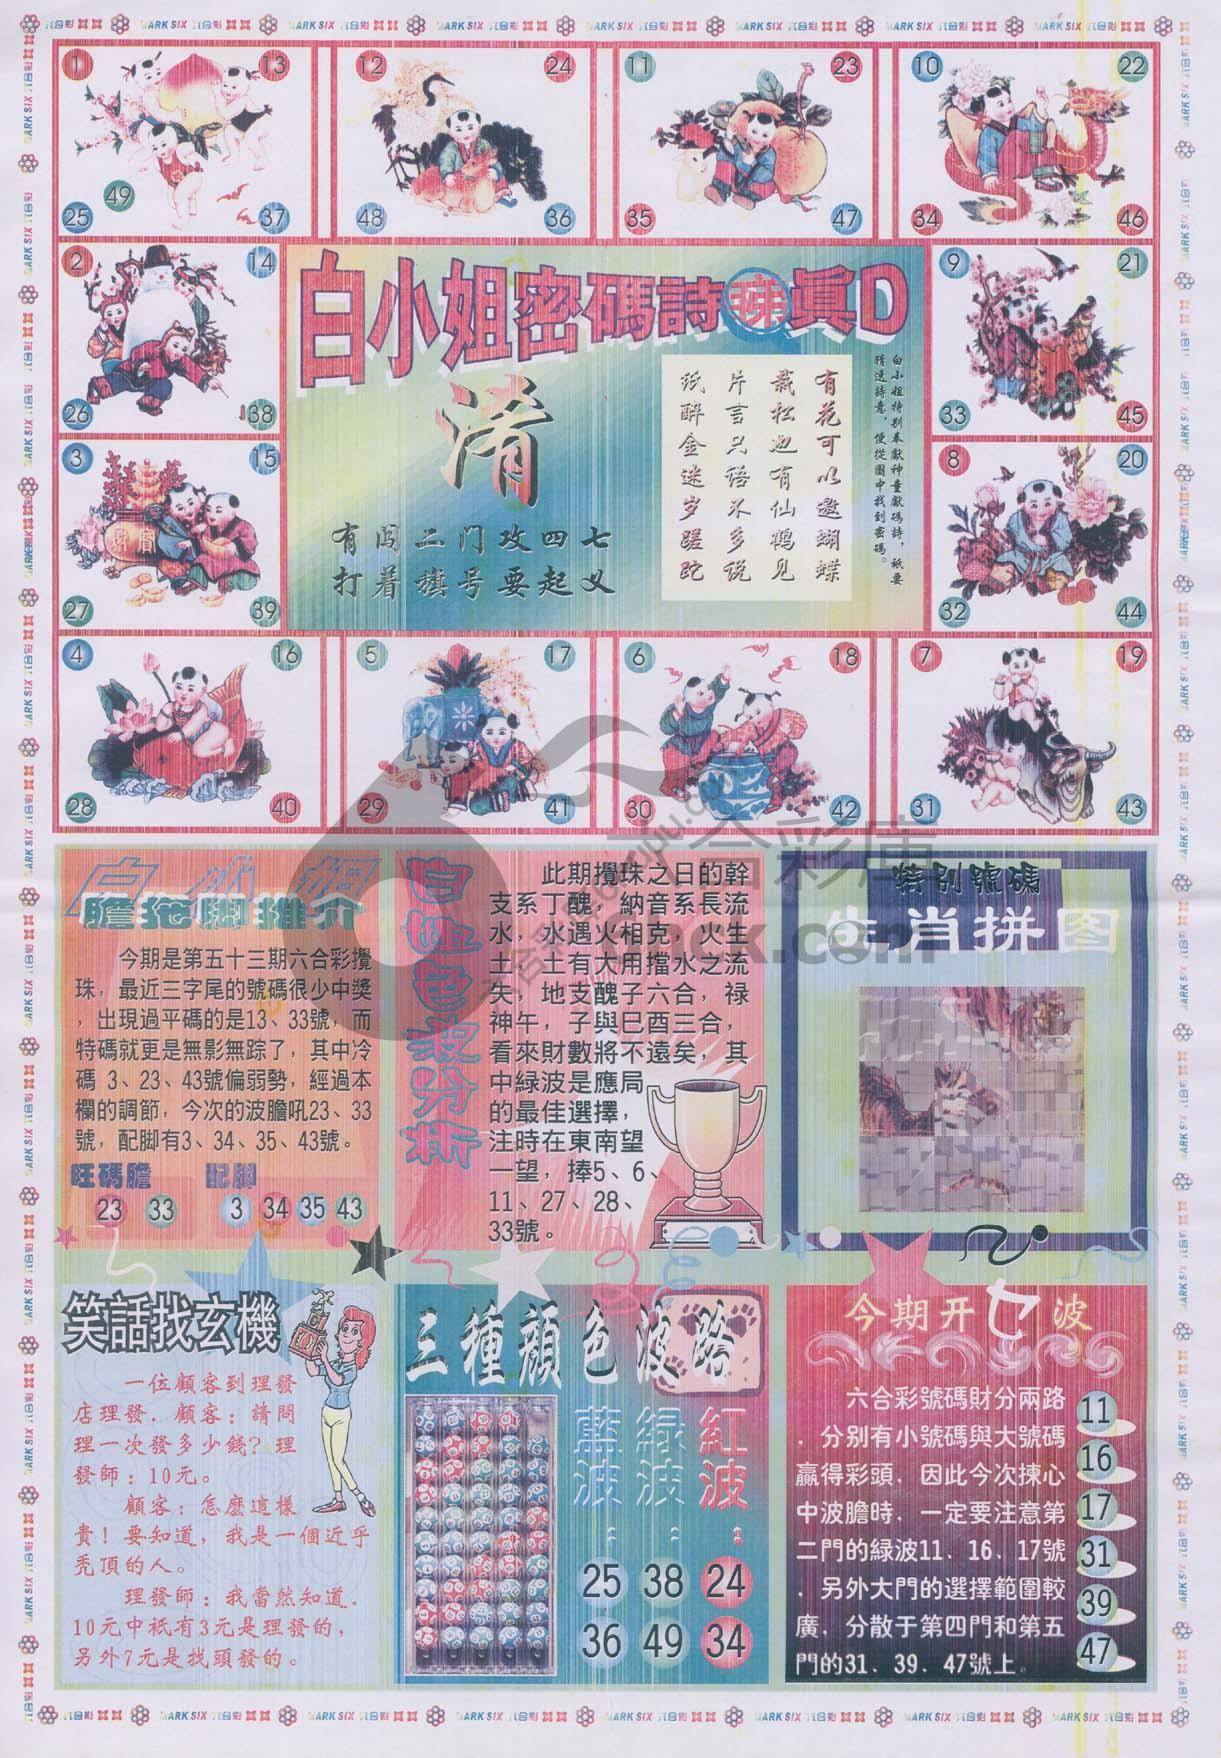 1 13
49
25 37
12 24
48 36
11 23
35 47
10 22
34 46
2 14
26 38
3 15
27 39
9 21
33 45
8 20
32 44
4 16
28 40
5 17
29 41
6 18
30 42
7 19
31 43
白小姐密碼詩 眞D
淆
有闯二门攻四七
打着旗号要起义
白小姐特别奉獻神童獻碼詩，祇要
猜透詩意，便從圖中找到密碼。
有花可以邀蝴蝶
栽松也有仙鹤见
片言只语不多说
纸醉金迷岁蹉跎
白小姐
膽拖脚推介
今期是第五十三期六合彩攪
珠，最近三字尾的號碼很少中獎
，出現過平碼的是13、33號，而
特碼就更是無影無踪了，其中冷
碼 3、23、43號偏弱勢，經過本
欄的調節，今次的波膽吼23、33
號，配脚有3、34、35、43號。
旺碼膽 配脚
23 33 3 34 35 43
白姐色波分析
此期攪珠之日的幹
支系丁醜，納音系長流
水，水遇火相克，火生
土，土有大用擋水之流
失，地支醜子六合，禄
神午，子與巳酉三合，
看來財數將不遠矣，其
中緑波是應局
的最佳選擇，
注時在東南望
一望，捧5、6、
11、27、28、
33號。
特别號碼
生肖拼图
笑話找玄機
一位顧客到理發
店理發．顧客：請問
理一次發多少錢？理
發師：10元。
顧客：怎麽這樣
貴！要知道，我是一個近乎
秃頂的人。
理發師：我當然知道．
10元中祇有3元是理發的，
另外7元是找頭發的。
三種顔色波路
紅波：
24
34
緑波：
38
49
藍波：
25
36
今期开七波
六合彩號碼財分兩路
．分别有小號碼與大號碼
贏得彩頭，因此今次揀心
中波膽時，一定要注意第
二門的緑波11、16、17號
．另外大門的選擇範圍較
廣，分散于第四門和第五
門的31、39、47號上。
11
16
17
31
39
47